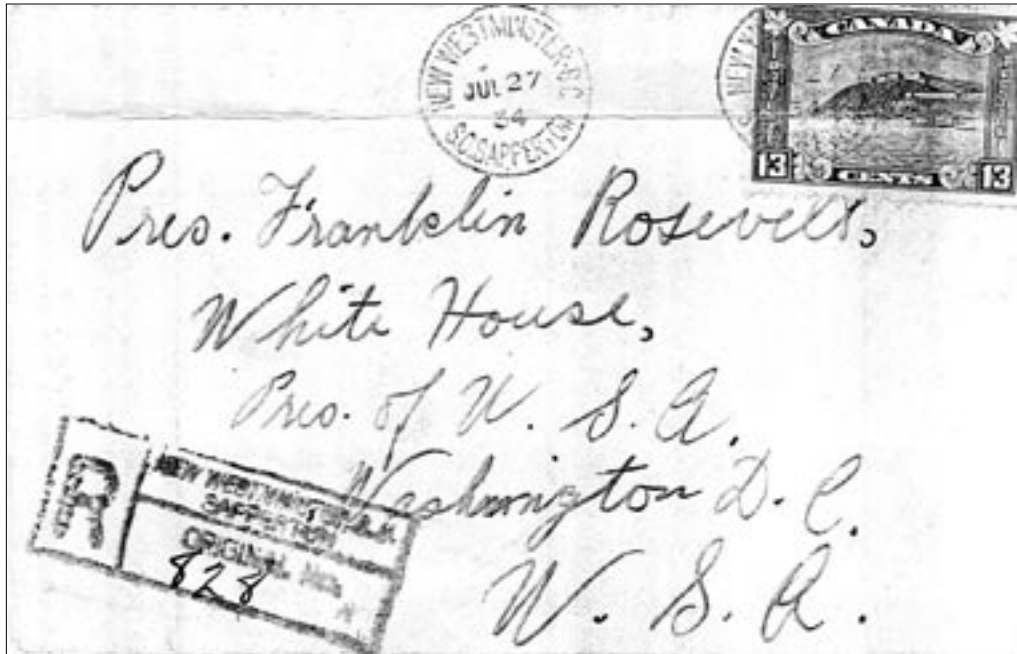 NEW WESTMINSTER B.C.
JUL 27
34
S.O. SAPPERTON
CANADA
13 CENTS 13
Pres. Franklin Rosevelt,
White House,
Pres. of U. S. A.
Washington D. C.
U. S. A.
R
NEW WESTMINSTER
SAPPERTON
ORIGINAL NO.
828